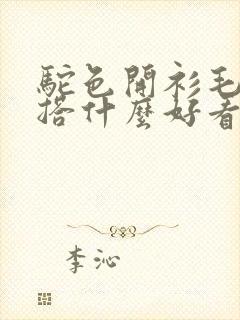 駝色開衫毛
搭什麼好看
李沁